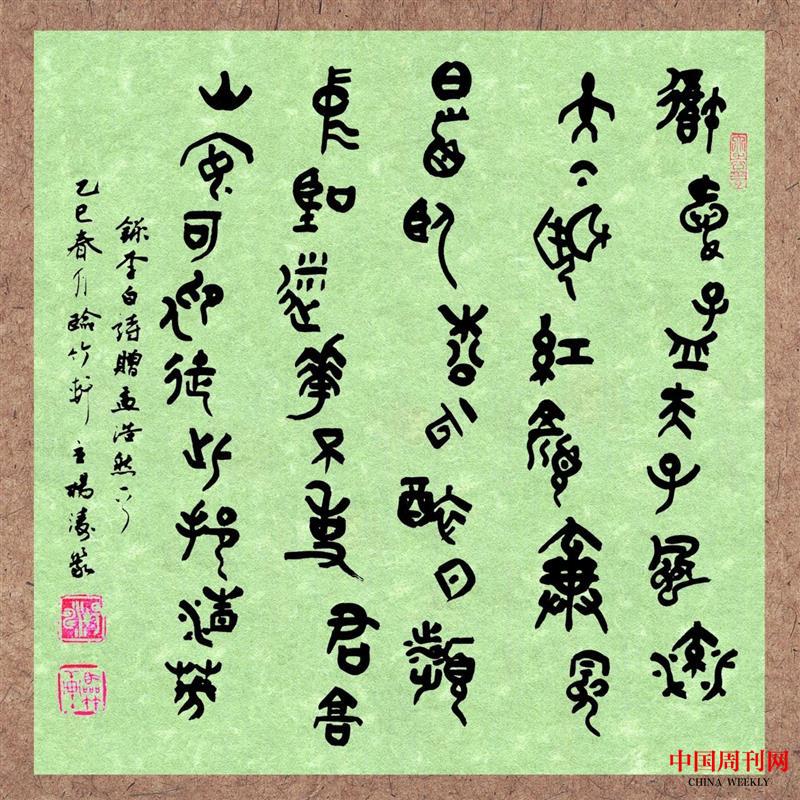 吾愛孟夫子風流
天下聞紅顏棄冕
白首臥松云醉月頻
中聖迷花不事君高
山安可仰徒此揖清芬
錄李白詩贈孟浩然一首
乙巳春月 竹軒主楊濤篆
中国周刊网
CHINA WEEKLY